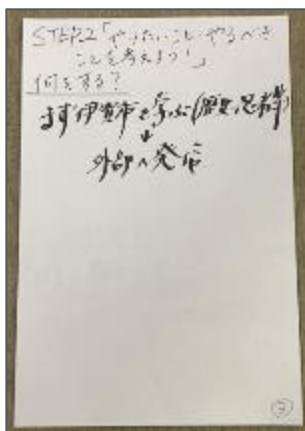 STEP.2「やりたいこと・やるべき
ことを考えよう!」
何をする?
まず伊賀市を学ぶ(歴史、忍者等)
↓
外部へ発信
②